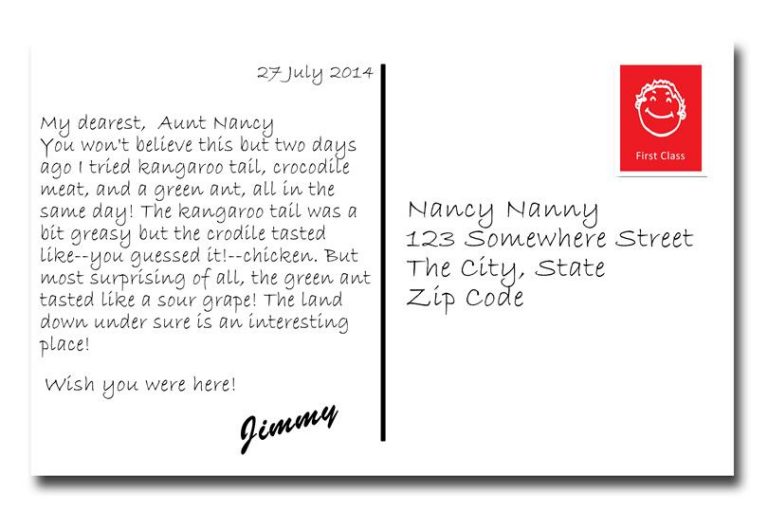 27 July 2014
My dearest,  Aunt Nancy
You won't believe this but two days
ago I tried kangaroo tail, crocodile
meat, and a green ant, all in the
same day! The kangaroo tail was a
bit greasy but the crodile tasted
like--you guessed it!--chicken. But
most surprising of all, the green ant
tasted like a sour grape! The land
down under sure is an interesting
place!
Wish you were here!
Jimmy
First Class
Nancy Nanny
123 Somewhere Street
The City, State
Zip Code